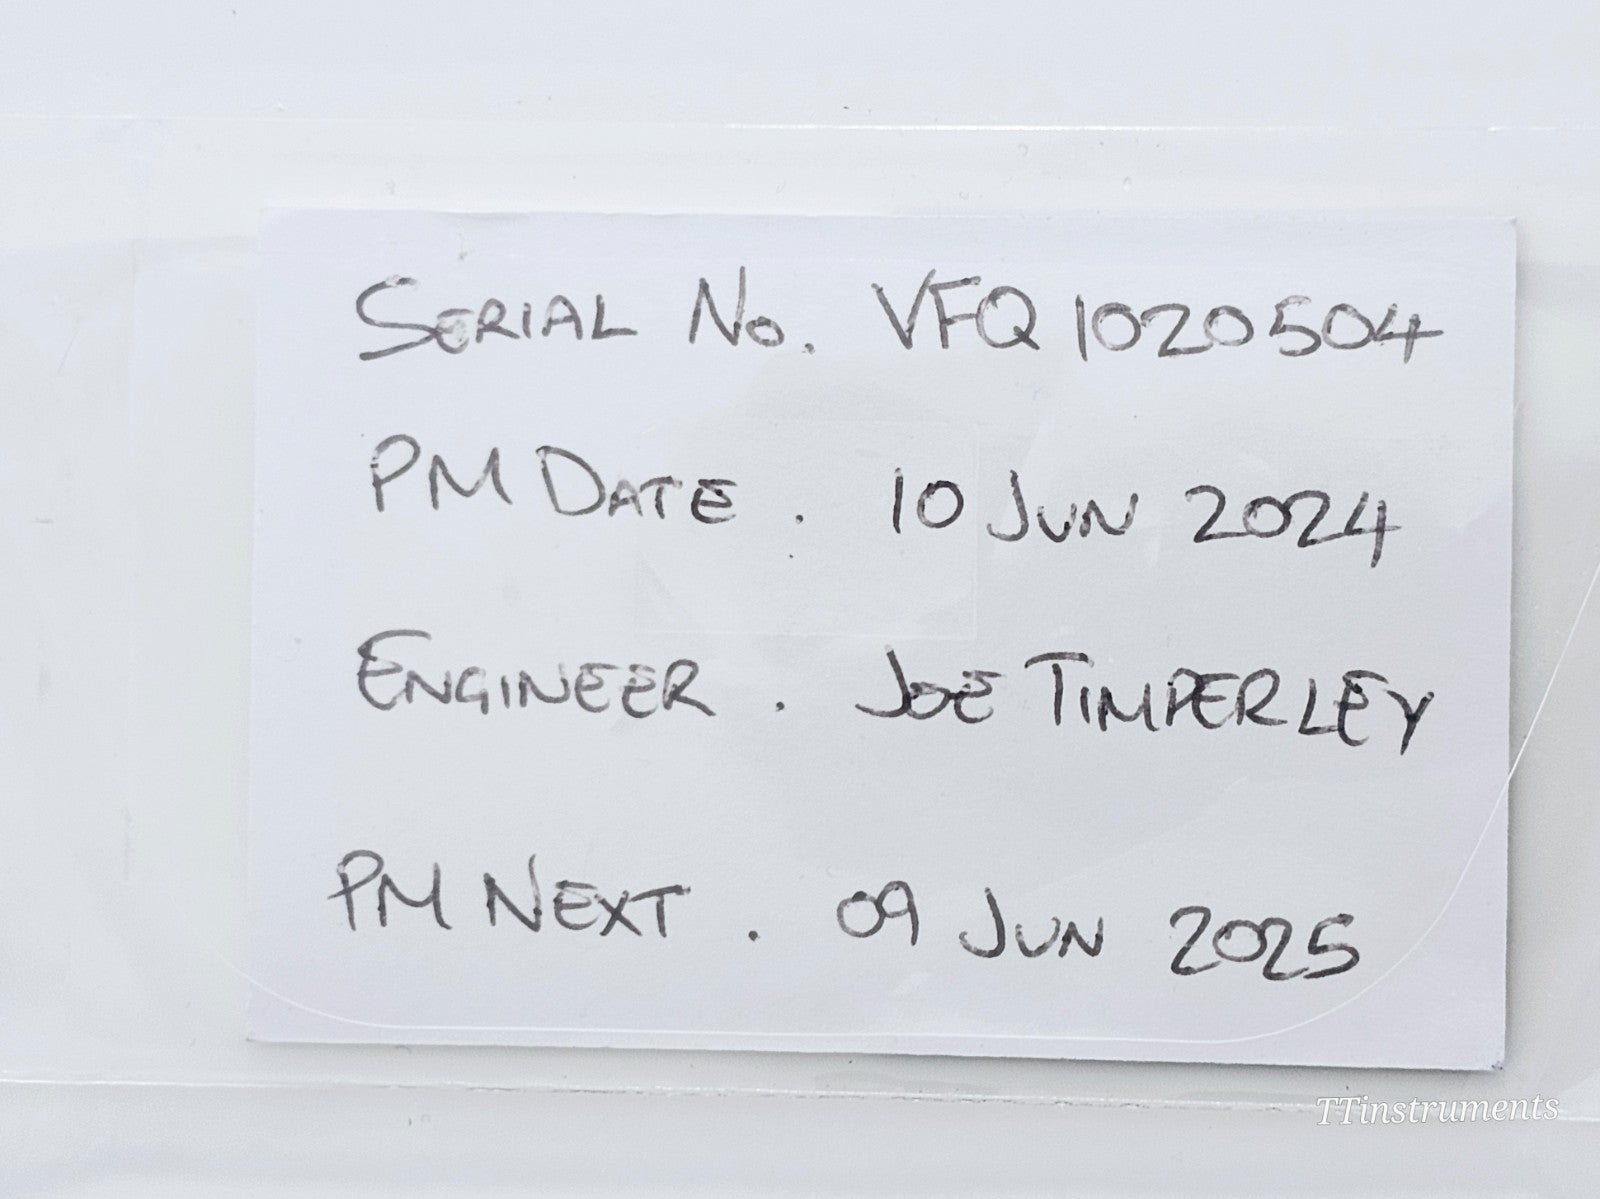 SERIAL No. VFQ 1020504
PM DATE . 10 JUN 2024
ENGINEER . JOE TIMPERLEY
PM NEXT . 09 JUN 2025
TTinstruments